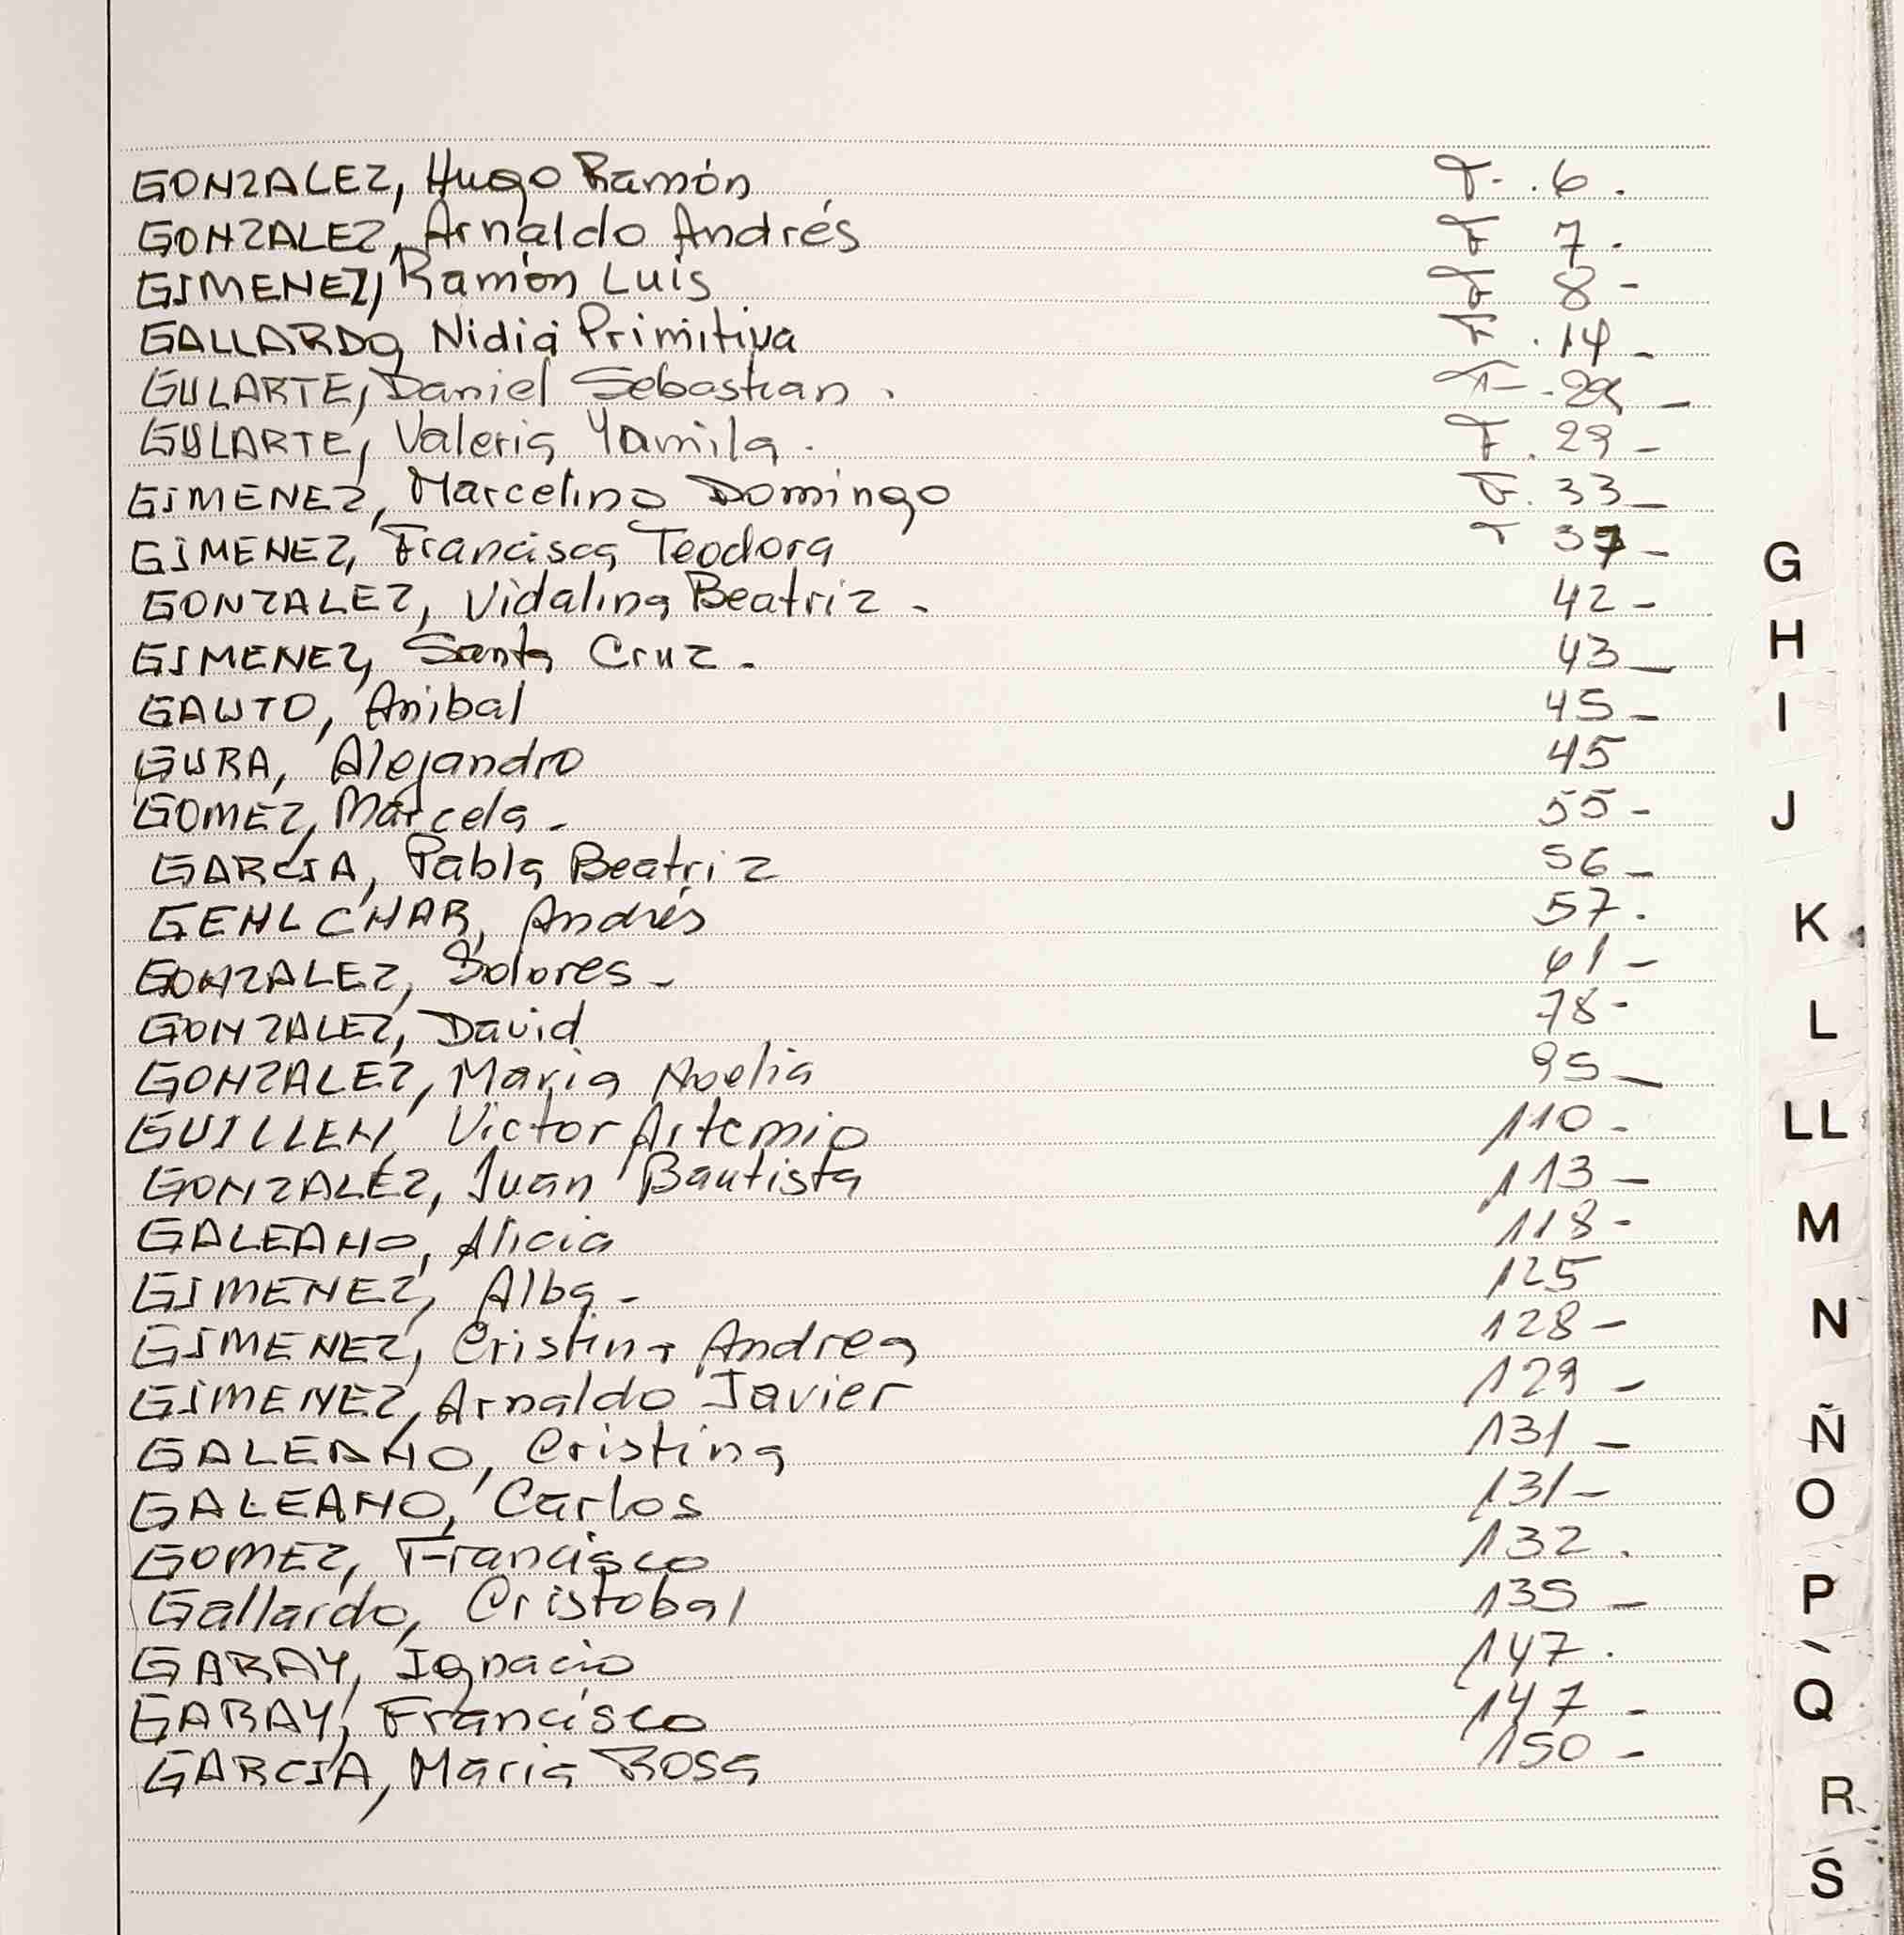 GONZALEZ, Hugo Ramón F. 6.
GONZALEZ, Arnaldo Andrés F 7.
GIMENEZ, Ramón Luis F 8-
GALLARDO, Nidia Primitiva F. 14-
GULARTE, Daniel Sebastian. F. 29-
GULARTE, Valeria Yamila. F. 29-
GIMENEZ, Marcelino Domingo F. 33-
GIMENEZ, Francisca Teodora F 37-
GONZALEZ, Vidalina Beatriz- 42-
GIMENEZ, Santa Cruz- 43-
GAUTO, Anibal 45-
GURA, Alejandro 45
GOMEZ, Marcela- 55-
GARCIA, Pabla Beatriz 56-
GEHLCHAR, Andrés 57.
GONZALEZ, Dolores- 61-
GONZALEZ, David 78-
GONZALEZ, Maria Noelia 95-
GUILLEN, Victor Artemio 110-
GONZALEZ, Juan Bautista 113-
GALEANO, Alicia 118-
GIMENEZ, Alba- 125
GIMENEZ, Cristina Andrea 128-
GIMENEZ, Arnaldo Javier 129-
GALEANO, Cristina 131-
GALEANO, Carlos 131-
GOMEZ, Francisco 132.
Gallardo, Cristobal 135-
GARAY, Ignacio 147.
GARAY, Francisco 147-
GARCIA, Maria Rosa 150-
G
H
I
J
K
L
LL
M
N
Ñ
O
P
Q
R
S